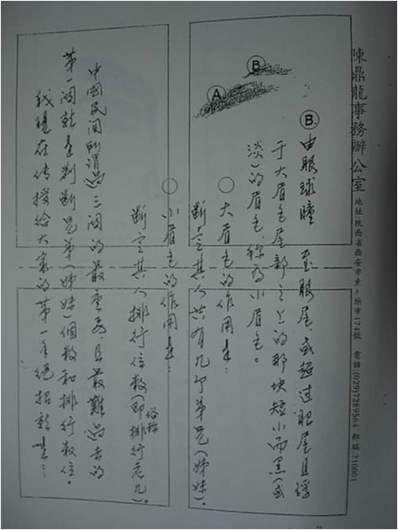 陳鼎龍事務辦公室 地址:陝西省西安市東 174號 電話:(029)7289564 郵編:710001
Ⓑ 由眼球瞳 至眼尾,或超过眼尾且浮
于大眉毛尾部之上的那块短小而黑(或
淡)的眉毛,称为小眉毛。
Ⓑ
Ⓐ
○大眉毛的作用是:
断定其人共有几个弟兄(姊妹)。
○小眉毛的作用是:
断定其人排行位数(即俗称排行老几)。
中国民间所谓过三関的最重要且最难过去的
第一関就是判断兄弟(姊妹)個数和排行数位。
我现在传授给大家的第一手绝招就是: